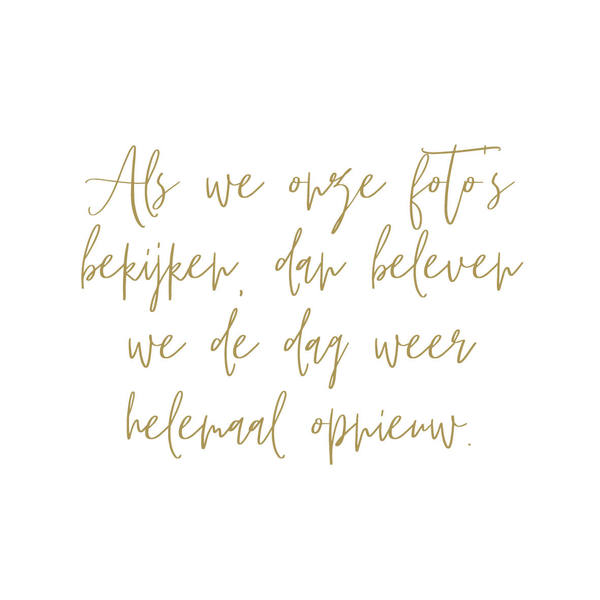 Als we onze foto's
bekijken, dan beleven
we de dag weer
helemaal opnieuw.